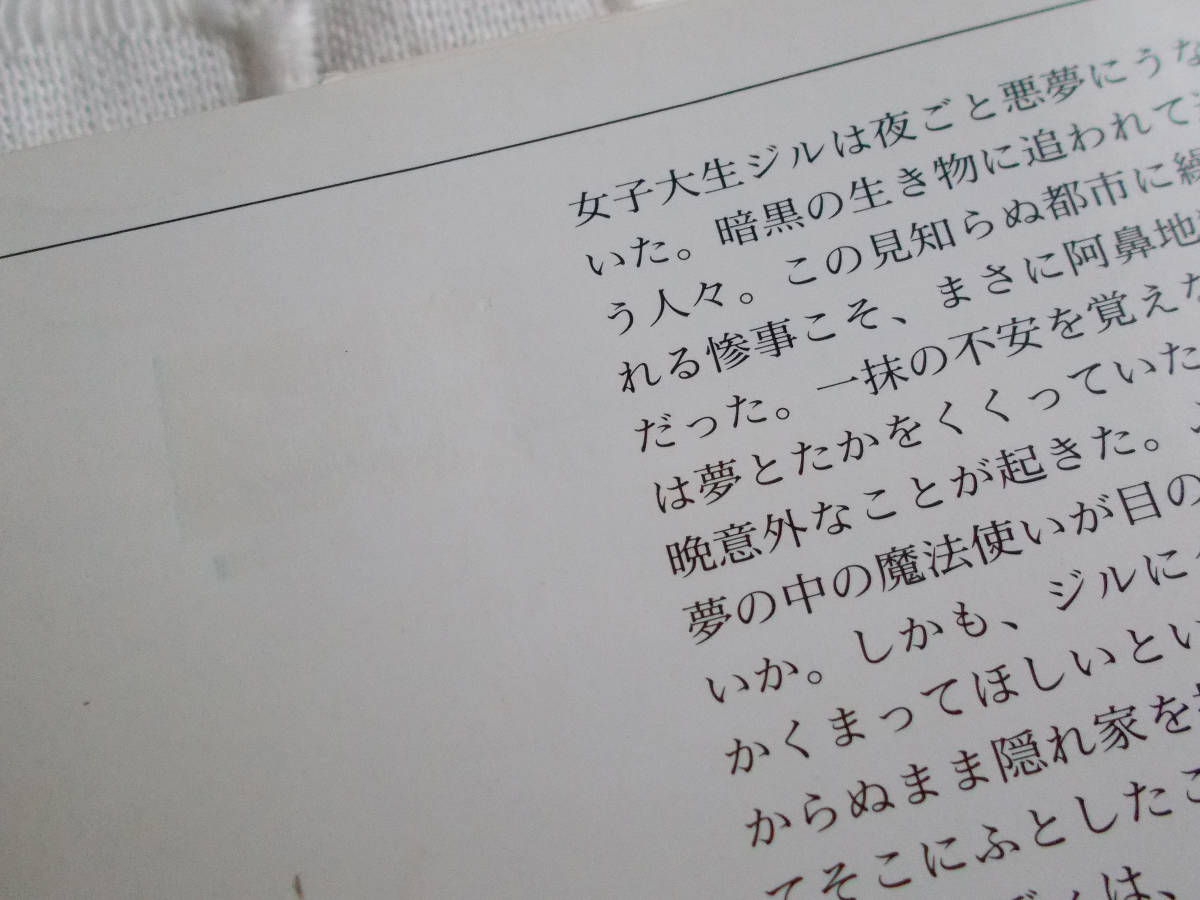 女子大生ジルは夜ごと悪夢にうな
いた。暗黒の生き物に追われて
う人々。この見知らぬ都市に繰
れる惨事こそ、まさに阿鼻地
だった。一抹の不安を覚えな
は夢とたかをくくっていた
晩意外なことが起きた。
夢の中の魔法使いが目の
いか。しかも、ジルに
かくまってほしいとい
からぬまま隠れ家を
てそこにふとしたこ
は、